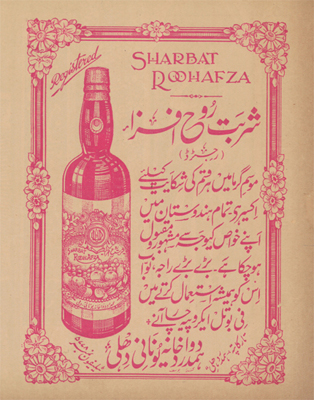 Registered
SHARBAT
ROOHAFZA
شربت روح افزا
(رجسٹرڈ)
موسم گرما میں ہر قسم کی شکایت کیلئے
اکسیر ہے تمام ہندوستان میں
اپنے خواص کیوجہ سے مشہور و مقبول
ہو چکا ہے۔ بڑے بڑے راجہ نواب
اس کو ہمیشہ استعمال کرتے ہیں
فی بوتل ایکروپیہ چار آنے
ہمدرد دواخانہ یونانی دہلی
ROOHAFZA